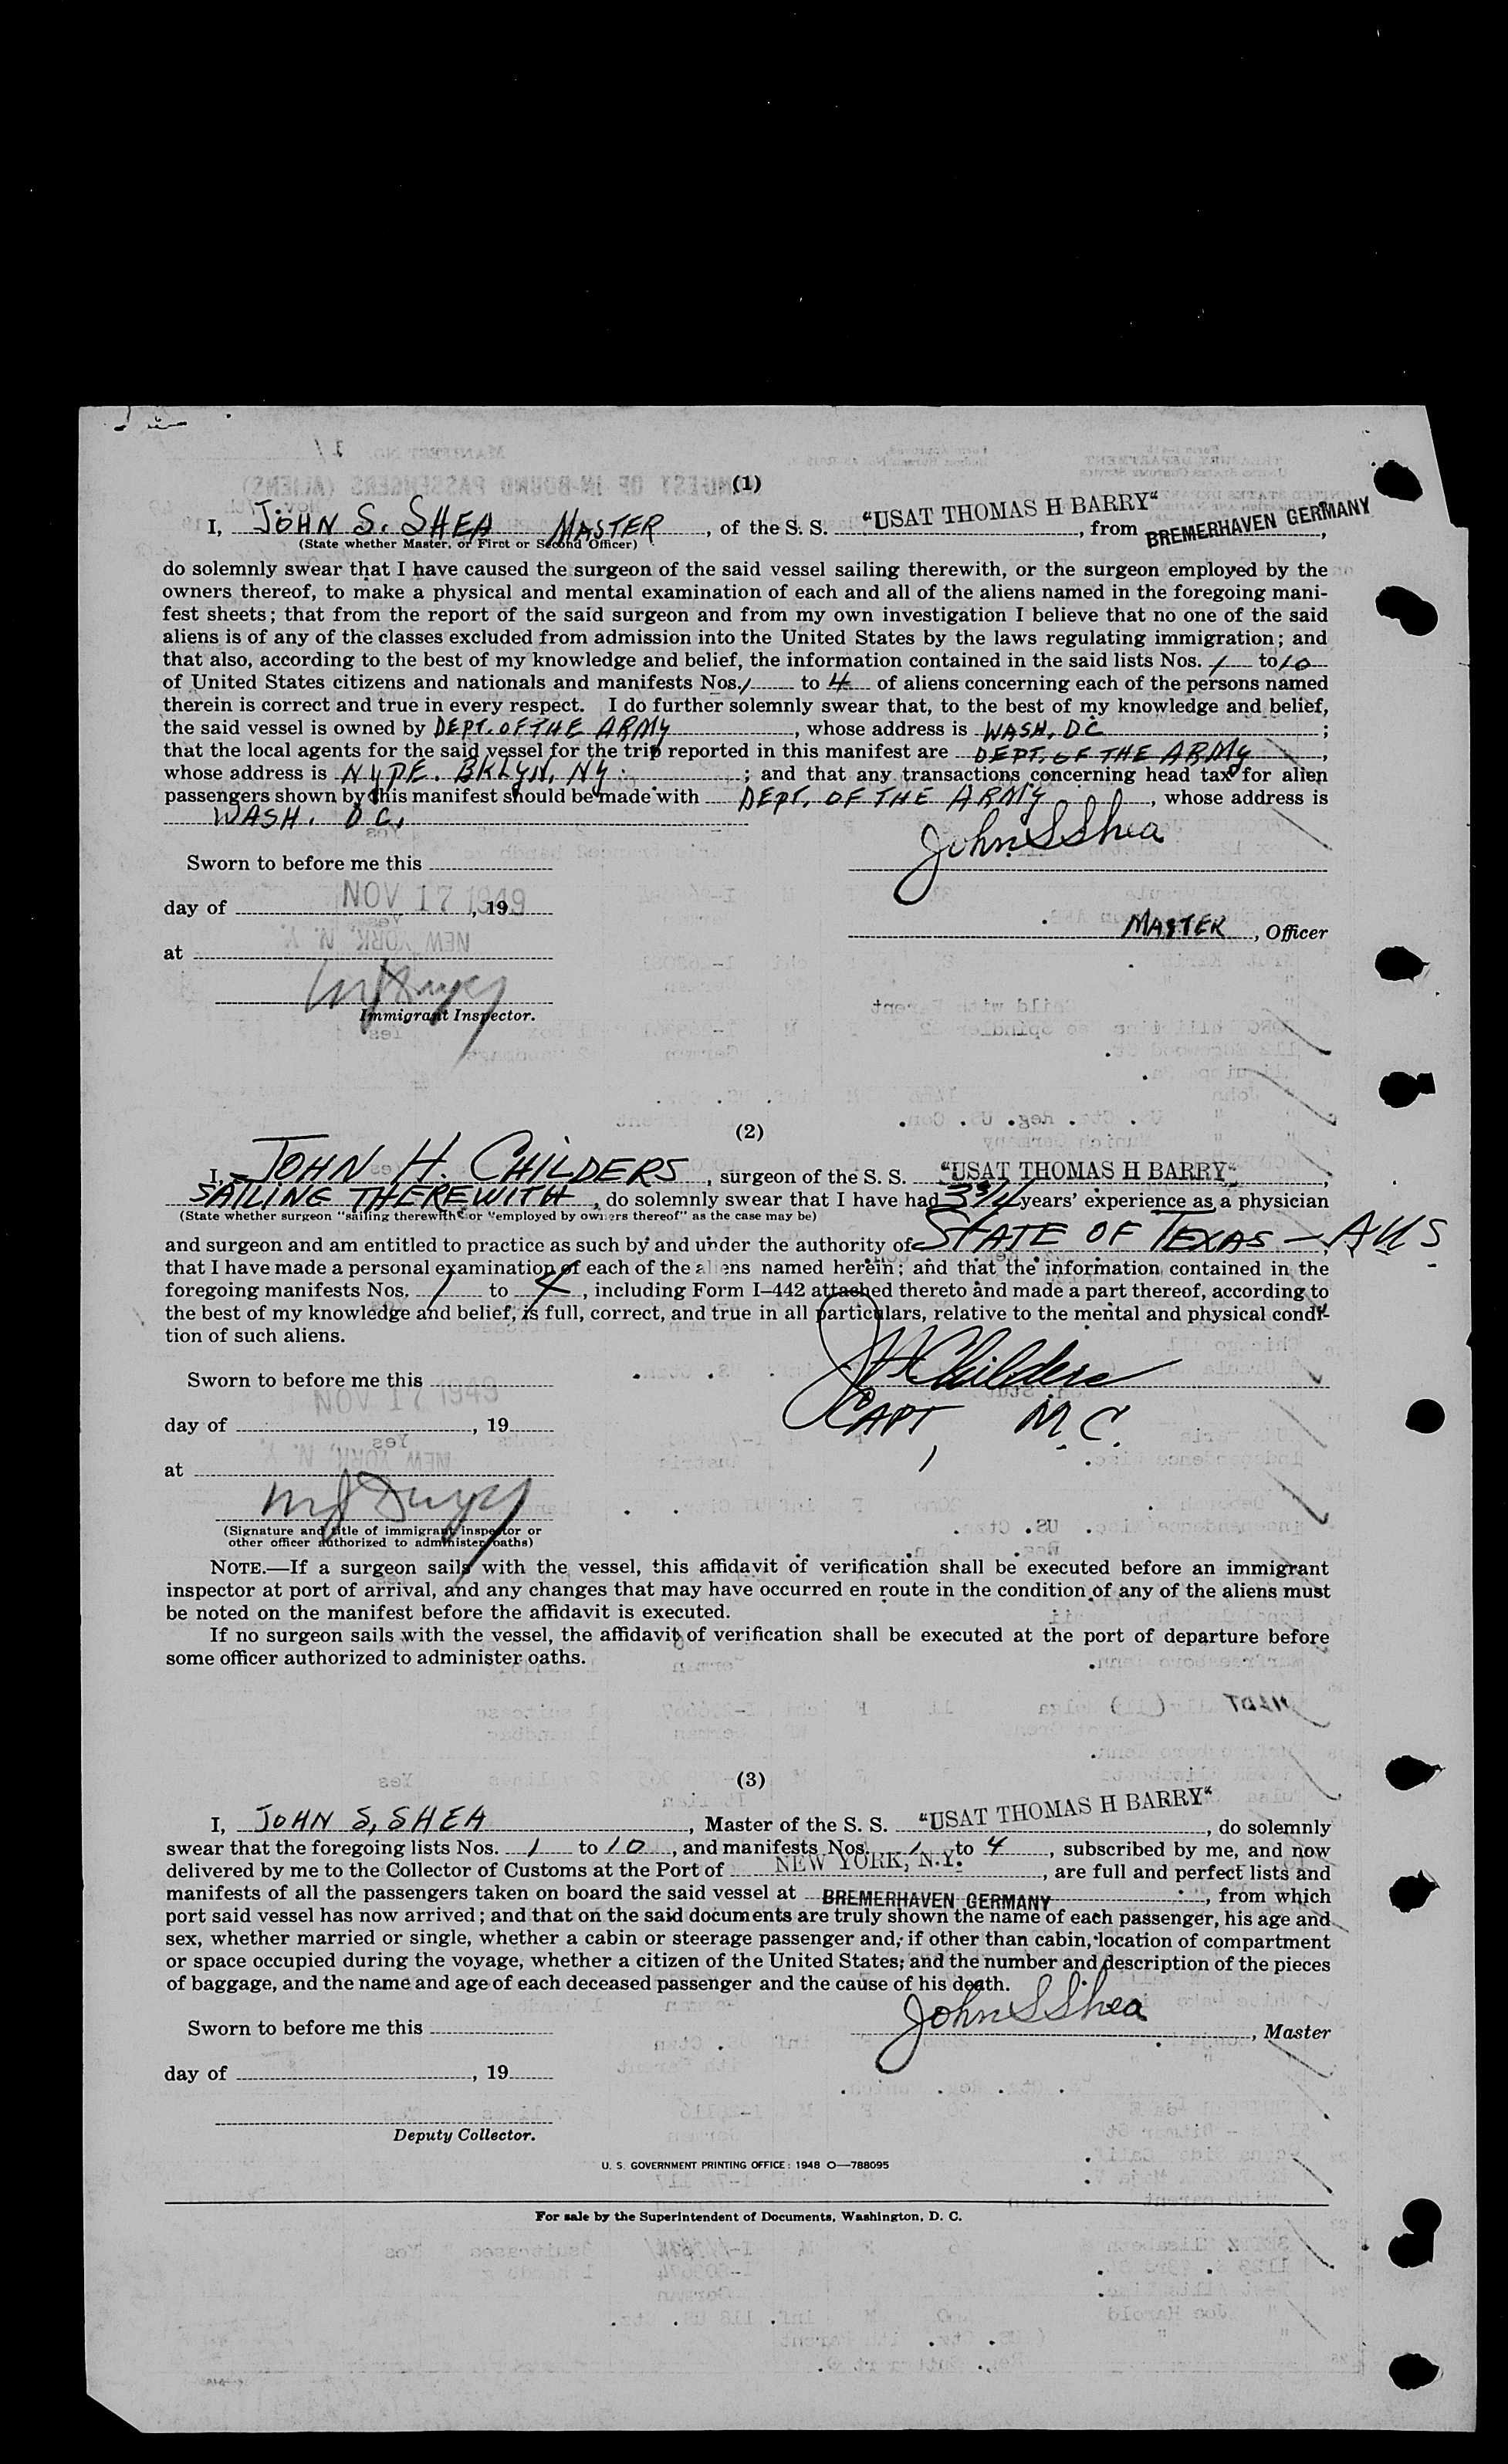 (1)
I, JOHN S. SHEA MASTER, of the S. S. "USAT THOMAS H BARRY", from BREMERHAVEN GERMANY,
(State whether Master, or First or Second Officer)
do solemnly swear that I have caused the surgeon of the said vessel sailing therewith, or the surgeon employed by the
owners thereof, to make a physical and mental examination of each and all of the aliens named in the foregoing mani-
fest sheets; that from the report of the said surgeon and from my own investigation I believe that no one of the said
aliens is of any of the classes excluded from admission into the United States by the laws regulating immigration; and
that also, according to the best of my knowledge and belief, the information contained in the said lists Nos. 1 to 10
of United States citizens and nationals and manifests Nos. 1 to 4 of aliens concerning each of the persons named
therein is correct and true in every respect. I do further solemnly swear that, to the best of my knowledge and belief,
the said vessel is owned by DEPT. OF THE ARMY, whose address is WASH, DC;
that the local agents for the said vessel for the trip reported in this manifest are DEPT. OF THE ARMY,
whose address is NYPE. BKLYN, NY.; and that any transactions concerning head tax for alien
passengers shown by this manifest should be made with DEPT. OF THE ARMY, whose address is
WASH. DC.
John S Shea
Sworn to before me this
day of NOV 17 1949, 19
MASTER, Officer
at NEW YORK, N. Y.
Immigrant Inspector.
(2)
I, JOHN H. CHILDERS, surgeon of the S. S. "USAT THOMAS H BARRY",
SAILING THEREWITH, do solemnly swear that I have had 3 3/4 years' experience as a physician
(State whether surgeon "sailing therewith" or "employed by owners thereof" as the case may be)
and surgeon and am entitled to practice as such by and under the authority of STATE OF TEXAS - AUS
that I have made a personal examination of each of the aliens named herein; and that the information contained in the
foregoing manifests Nos. 1 to 4, including Form I-442 attached thereto and made a part thereof, according to
the best of my knowledge and belief, is full, correct, and true in all particulars, relative to the mental and physical condi-
tion of such aliens.
JH Childers
CAPT, M.C.
Sworn to before me this
NOV 17 1949
day of , 19
at NEW YORK, N. Y.
(Signature and title of immigrant inspector or
other officer authorized to administer oaths)
NOTE.—If a surgeon sails with the vessel, this affidavit of verification shall be executed before an immigrant
inspector at port of arrival, and any changes that may have occurred en route in the condition of any of the aliens must
be noted on the manifest before the affidavit is executed.
If no surgeon sails with the vessel, the affidavit of verification shall be executed at the port of departure before
some officer authorized to administer oaths.
(3)
I, JOHN S, SHEA, Master of the S. S. "USAT THOMAS H BARRY", do solemnly
swear that the foregoing lists Nos. 1 to 10, and manifests Nos. 1 to 4, subscribed by me, and now
delivered by me to the Collector of Customs at the Port of NEW YORK, N.Y., are full and perfect lists and
manifests of all the passengers taken on board the said vessel at BREMERHAVEN GERMANY, from which
port said vessel has now arrived; and that on the said documents are truly shown the name of each passenger, his age and
sex, whether married or single, whether a cabin or steerage passenger and, if other than cabin, location of compartment
or space occupied during the voyage, whether a citizen of the United States; and the number and description of the pieces
of baggage, and the name and age of each deceased passenger and the cause of his death.
John S Shea, Master
Sworn to before me this
day of , 19
Deputy Collector.
U. S. GOVERNMENT PRINTING OFFICE: 1948 O—788095
For sale by the Superintendent of Documents, Washington, D. C.